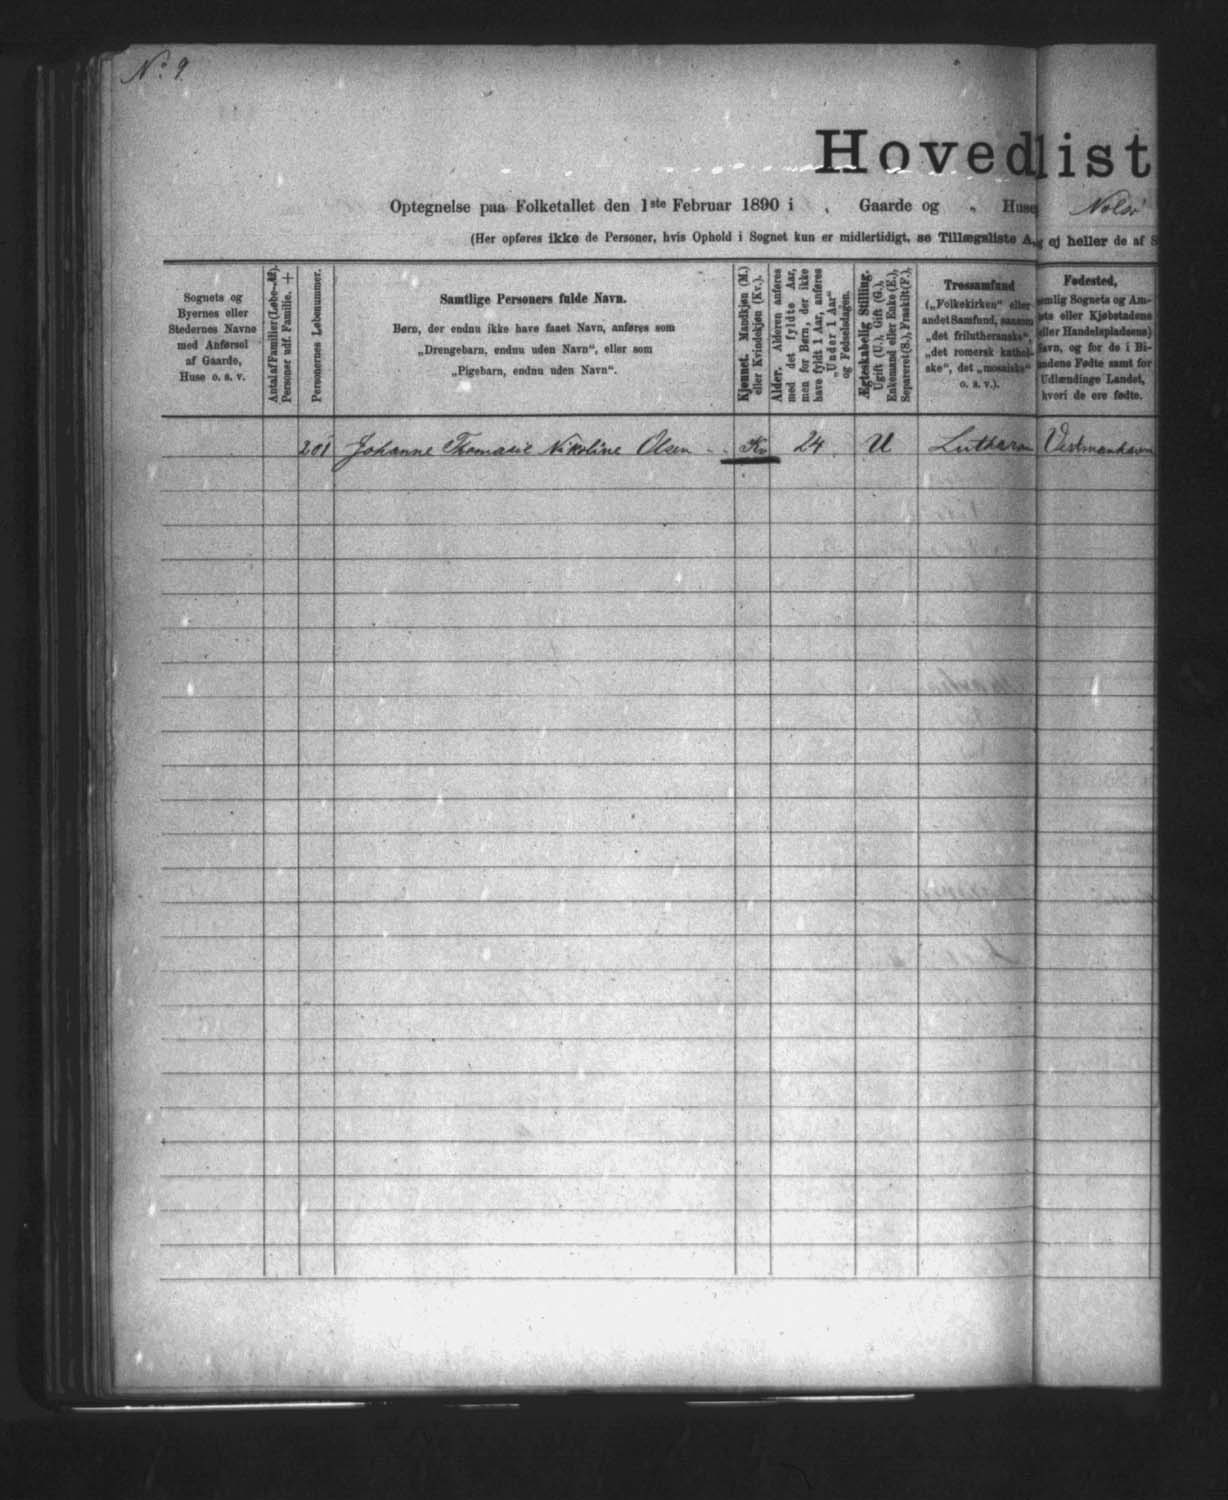 No 9
Hovedlist
Optegnelse paa Folketallet den 1ste Februar 1890 i „ Gaarde og „ Huse Nolsö
(Her opføres ikke de Personer, hvis Ophold i Sognet kun er midlertidigt, se Tillægsliste A, ej heller de af S
Sognets og
Byernes eller
Stedernes Navne
med Anførsel
af Gaarde,
Huse o. s. v.
Antal af Familier (Løbe-№).
Personer udf. Familie. +
Personernes Løbenummer.
Samtlige Personers fulde Navn.
Børn, der endnu ikke have faaet Navn, anføres som
„Drengebarn, endnu uden Navn“, eller som
„Pigebarn, endnu uden Navn“.
Kjønnet. Mandkjøn (M.)
eller Kvindekjøn (Kv.).
Alder. Alderen anføres
med det fyldte Aar,
men for Børn, der ikke
have fyldt 1 Aar, anføres
„Under 1 Aar“
og Fødselsdagen.
Ægteskabelig Stilling.
Ugift (U.), Gift (G.),
Enkemand eller Enke (E.),
Separeret (S.), Fraskilt (F.),
Trossamfund
(„Folkekirken“ eller
andet Samfund, saasom
„det frilutheranske“,
„det romersk kathol-
ske“, det „mosaiske“
o. s. v.).
Fødested,
emlig Sognets og Am-
ets eller Kjøbstadens
eller Handelspladsens)
Navn, og for de i Bi-
andene Fødte samt for
Udlændinge Landet,
hvori de ere fødte.
201 Johanne Thomasie Nikoline Olsen Kv 24 U Lutheran Vestmanhavn